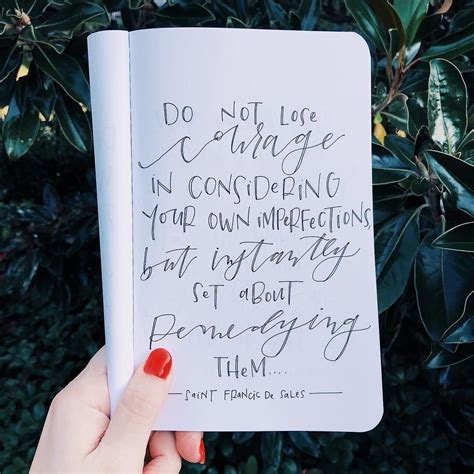 DO NOT LOSE
courage
IN CONSIDERING
YOUR OWN IMPERFECTIONS,
but instantly
SET ABOUT
Remedying
THEM....
— SAINT FRANCIC DE SALES —